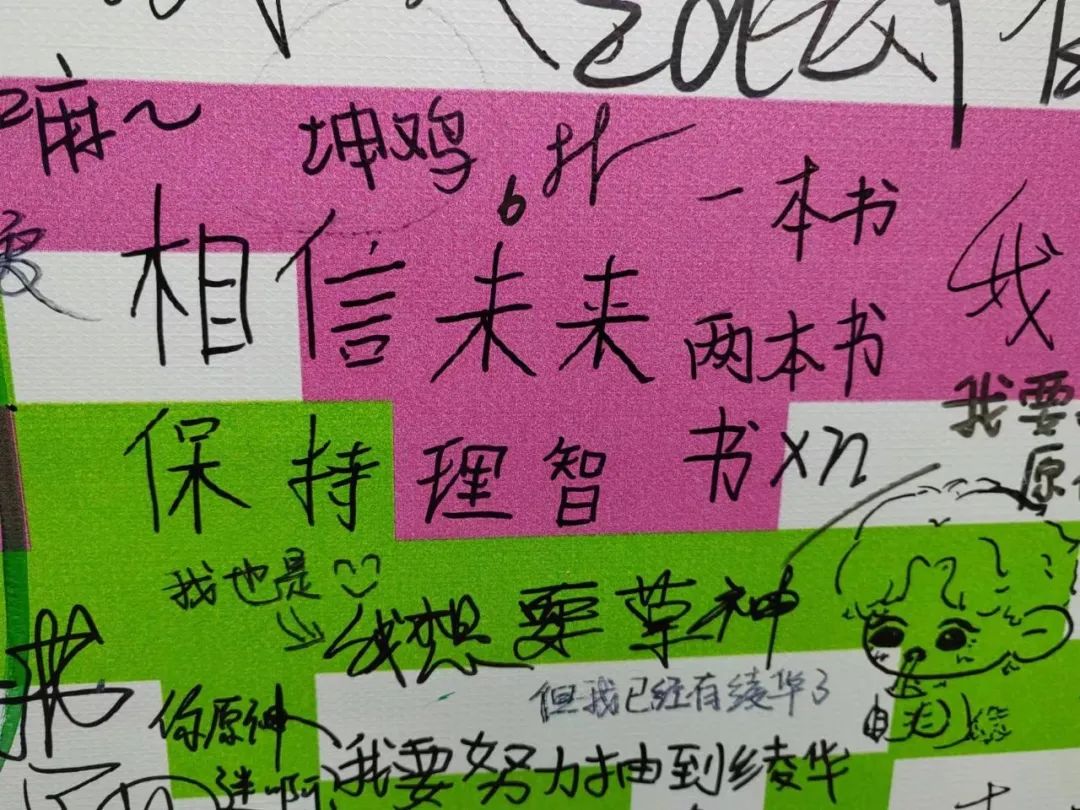 麻~
坤鸡
6
一本书
相信未来
我
两本书
我要
保持理智
书xn
原
我也是
我想要草神
但我已经有绫华了
你原神
我要努力抽到绫华